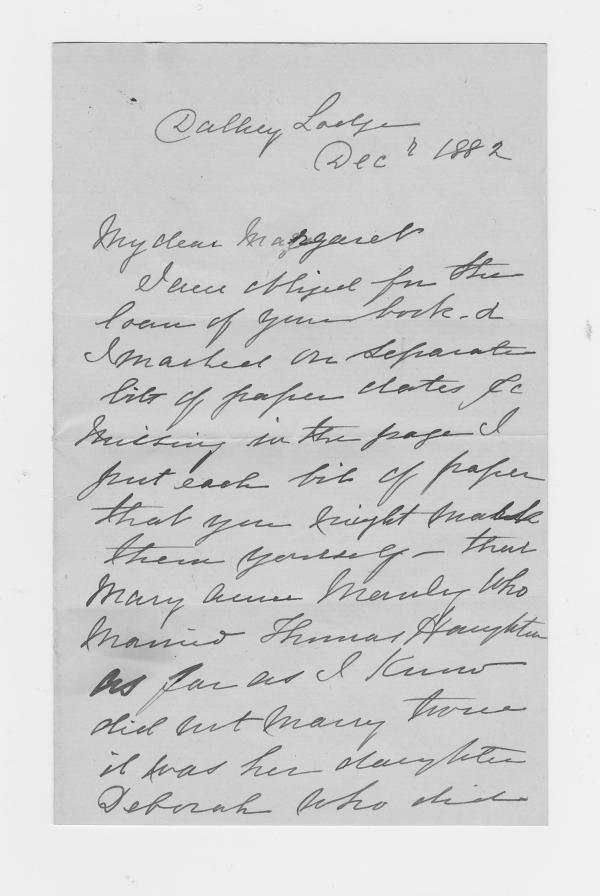 Dalkey Lodge
Dec r 1882
My dear Margaret
I am obliged for the
loan of your book - &
I marked on separate
bits of paper dates &c
missing in the page I
put each bit of paper
that you might mark
them yourself - that
Mary Anne Manly who
married Thomas Haughton
as far as I know
did not marry twice
it was her daughter
Deborah who did